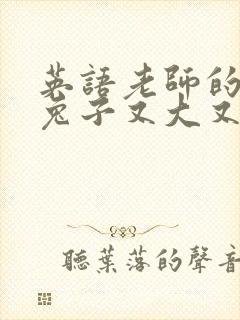 英語老師的
兔子又大又
聽葉落的聲音